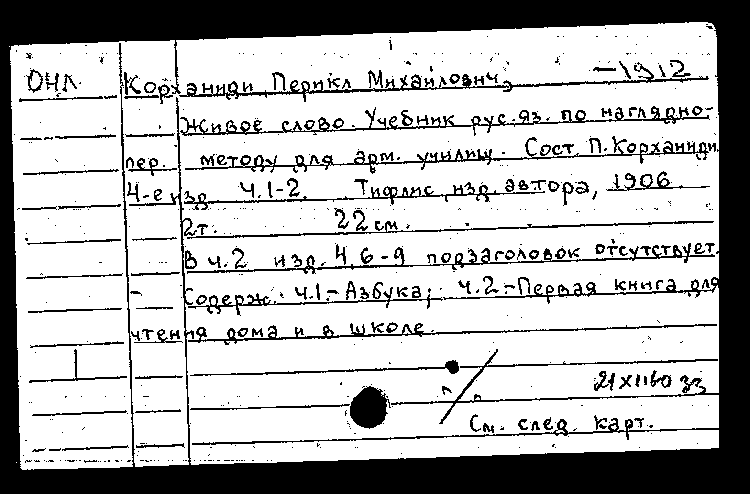 ОНЛ Корханиди, Перикл Михайлович, –1912
Живое слово. Учебник рус. яз. по наглядно-
пер. методу для арм. училищ. Сост. П. Корханиди
4-е изд. Ч.1-2. Тифлис, изд. автора, 1906.
2т. 22 см.
В ч.2 изд. 4, 6-9 подзаголовок отсутствует.
Содерж.: ч.1.-Азбука; ч.2.-Первая книга для
чтения дома и в школе.
См. след. карт.